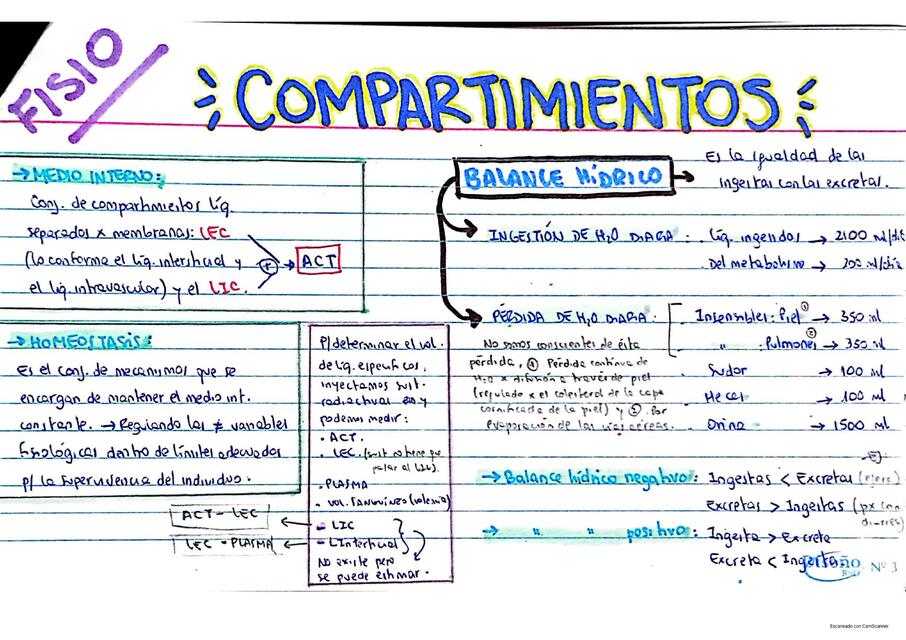 FISIO
COMPARTIMIENTOS
→ MEDIO INTERNO:
Conj. de compartimientos líq.
separados x membranas: LEC
(lo conforma el líq. intersticial y
el líq. intravascular) y el LIC.
+ → ACT
→ HOMEOSTASIS:
Es el conj. de mecanismos que se
encargan de mantener el medio int.
constante. → Regulando las ≠ variables
fisiológicas dentro de límites adecuados
p/ la supervivencia del individuo.
P/determinar el vol.
de líq. específicos,
inyectamos sust.
radiactivas y
podemos medir:
• ACT.
• LEC. (sust no tiene que
pasar al LIC).
• PLASMA
• VOL. SANGUÍNEO (volemia)
- LIC
- LIntersticial
No existe pero
se puede estimar.
ACT - LEC
LEC - PLASMA
BALANCE HÍDRICO →
Es la igualdad de las
ingestas con las excretas.
INGESTIÓN DE H2O DIARIA: Líq. ingeridos → 2100 ml/día
Del metabolismo → 200 ml/día
PÉRDIDA DE H2O DIARIA: Insensibles: Piel ① → 350 ml
" : Pulmones ② → 350 ml
Sudor → 100 ml
Heces → 100 ml
Orina → 1500 ml
No somos conscientes de ésta
pérdida, ① Pérdida continua de
H2O x difusión a través de piel
(regulado x el colesterol de la capa
cornificada de la piel) y ② Por
evaporación de las vías aéreas.
Ej
→ Balance hídrico negativo: Ingestas < Excretas (ejerc)
Excretas > Ingestas (px con
diarrea)
→ " " positivo: Ingesta > Excreta
Excreta < Ingesta
Nº 3
Escaneado con CamScanner